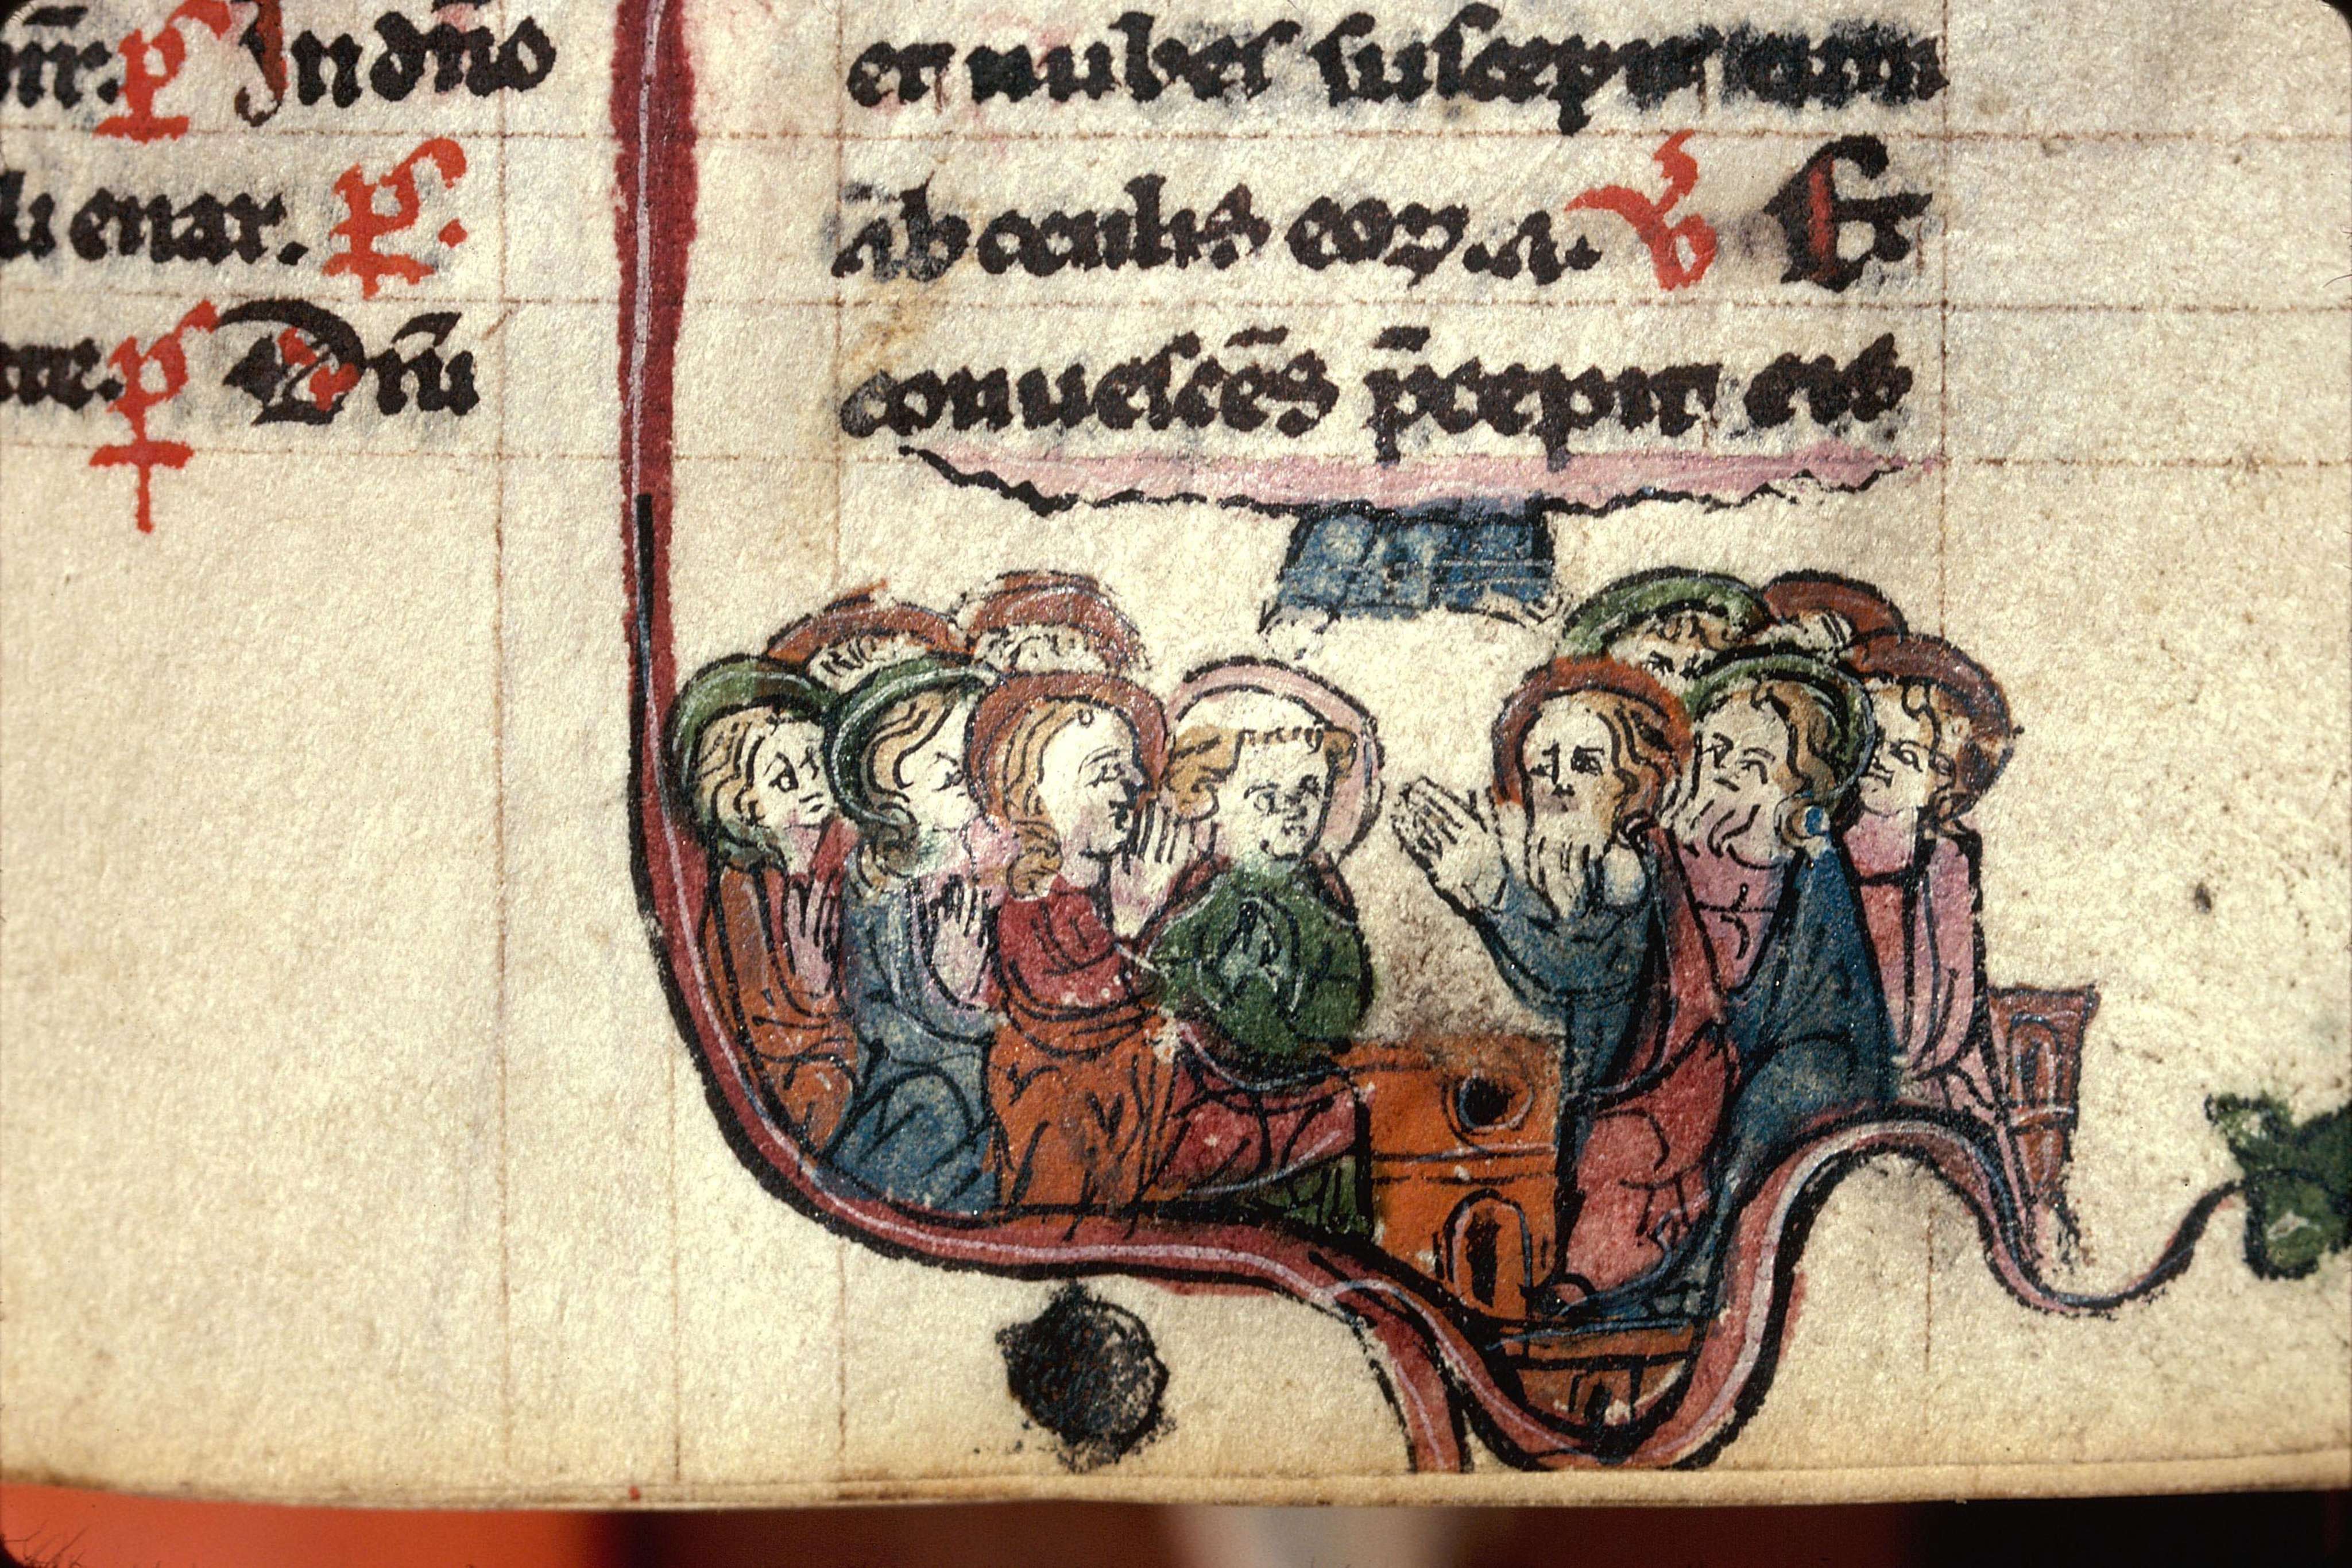 p̃ In dño
li enar. p̃.
p̃ Dñi
et nubes suscepit eum
ab oculis eoꝝ .a. V̕ Et
conuescẽs p̄cepit eis